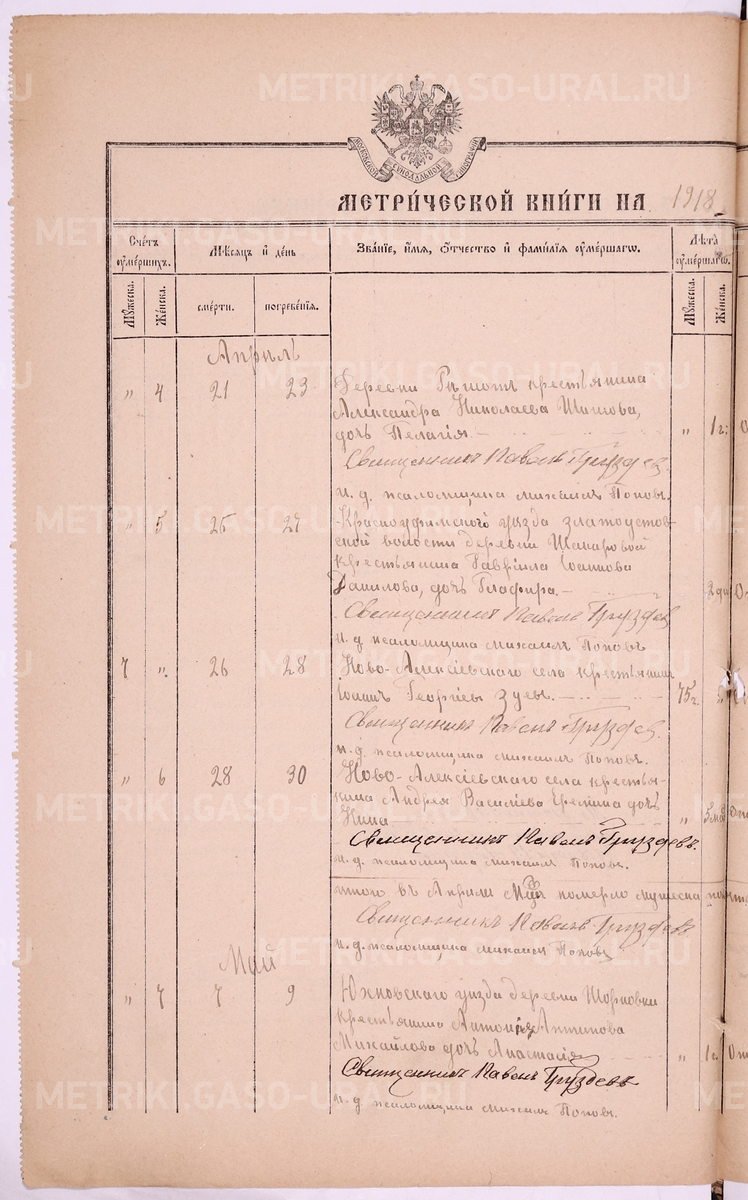 METRIKI.GASO-URAL.RU
МОСКОВСКОЙ СѴНОДАЛЬНОЙ ТИПОГРАФІИ
МЕТРИ́ЧЕСКОЙ КНИ́ГИ НА 1918
Сче́тъ ᲂумершихъ.
Мѣсяцъ и день
Зва́ніе, и́мя, ѻ́тчество и фами́лія ᲂуме́ршагѡ.
Лѣта ᲂуме́ршагѡ.
Мужеска.
Женска.
сме́рти.
погребе́нія.
Мужеска.
Женска.
Апрѣль
" 4 21 23 Деревни Рѣшотъ крестьянина
Александра Николаева Шитова,
дочь Пелагія. " 1 г.
Священникъ Павелъ Груздев
и. д. псаломщика михаилъ Поповъ.
" 5 25 27 Красноуфимского уѣзда златоустов-
ской волости деревни Шакаровой
крестьянина Гавріила Іоаннова
Данилова, дочь Глафира. 2 дн
Священникъ Павелъ Груздев
и. д. псаломщика михаилъ Поповъ
7 " 26 28 Ново-Алексіевского села крестьянин
Іоаннъ Георгіевъ Зуевъ. 75 г.
Священникъ Павелъ Груздев.
и. д. псаломщика михаилъ Поповъ.
" 6 28 30 Ново-Алексіевского села крестья-
нина Андрея Василіева дочь
Нина " 5 мѣс
Священникъ Павелъ Груздевъ.
и. д. псаломщика михаилъ Поповъ.
итого въ Апрѣли Мцѣ померло мужеска
Священникъ Павелъ Груздевъ
и. д. псаломщика михаилъ Поповъ
Май
" 7 7 9 Юхновского уѣзда деревни
крестьянина Антонія Антипова
Михайлова дочь Анастасія " 1 г.
Священникъ Павелъ Груздевъ
и. д. псаломщика михаилъ Поповъ.